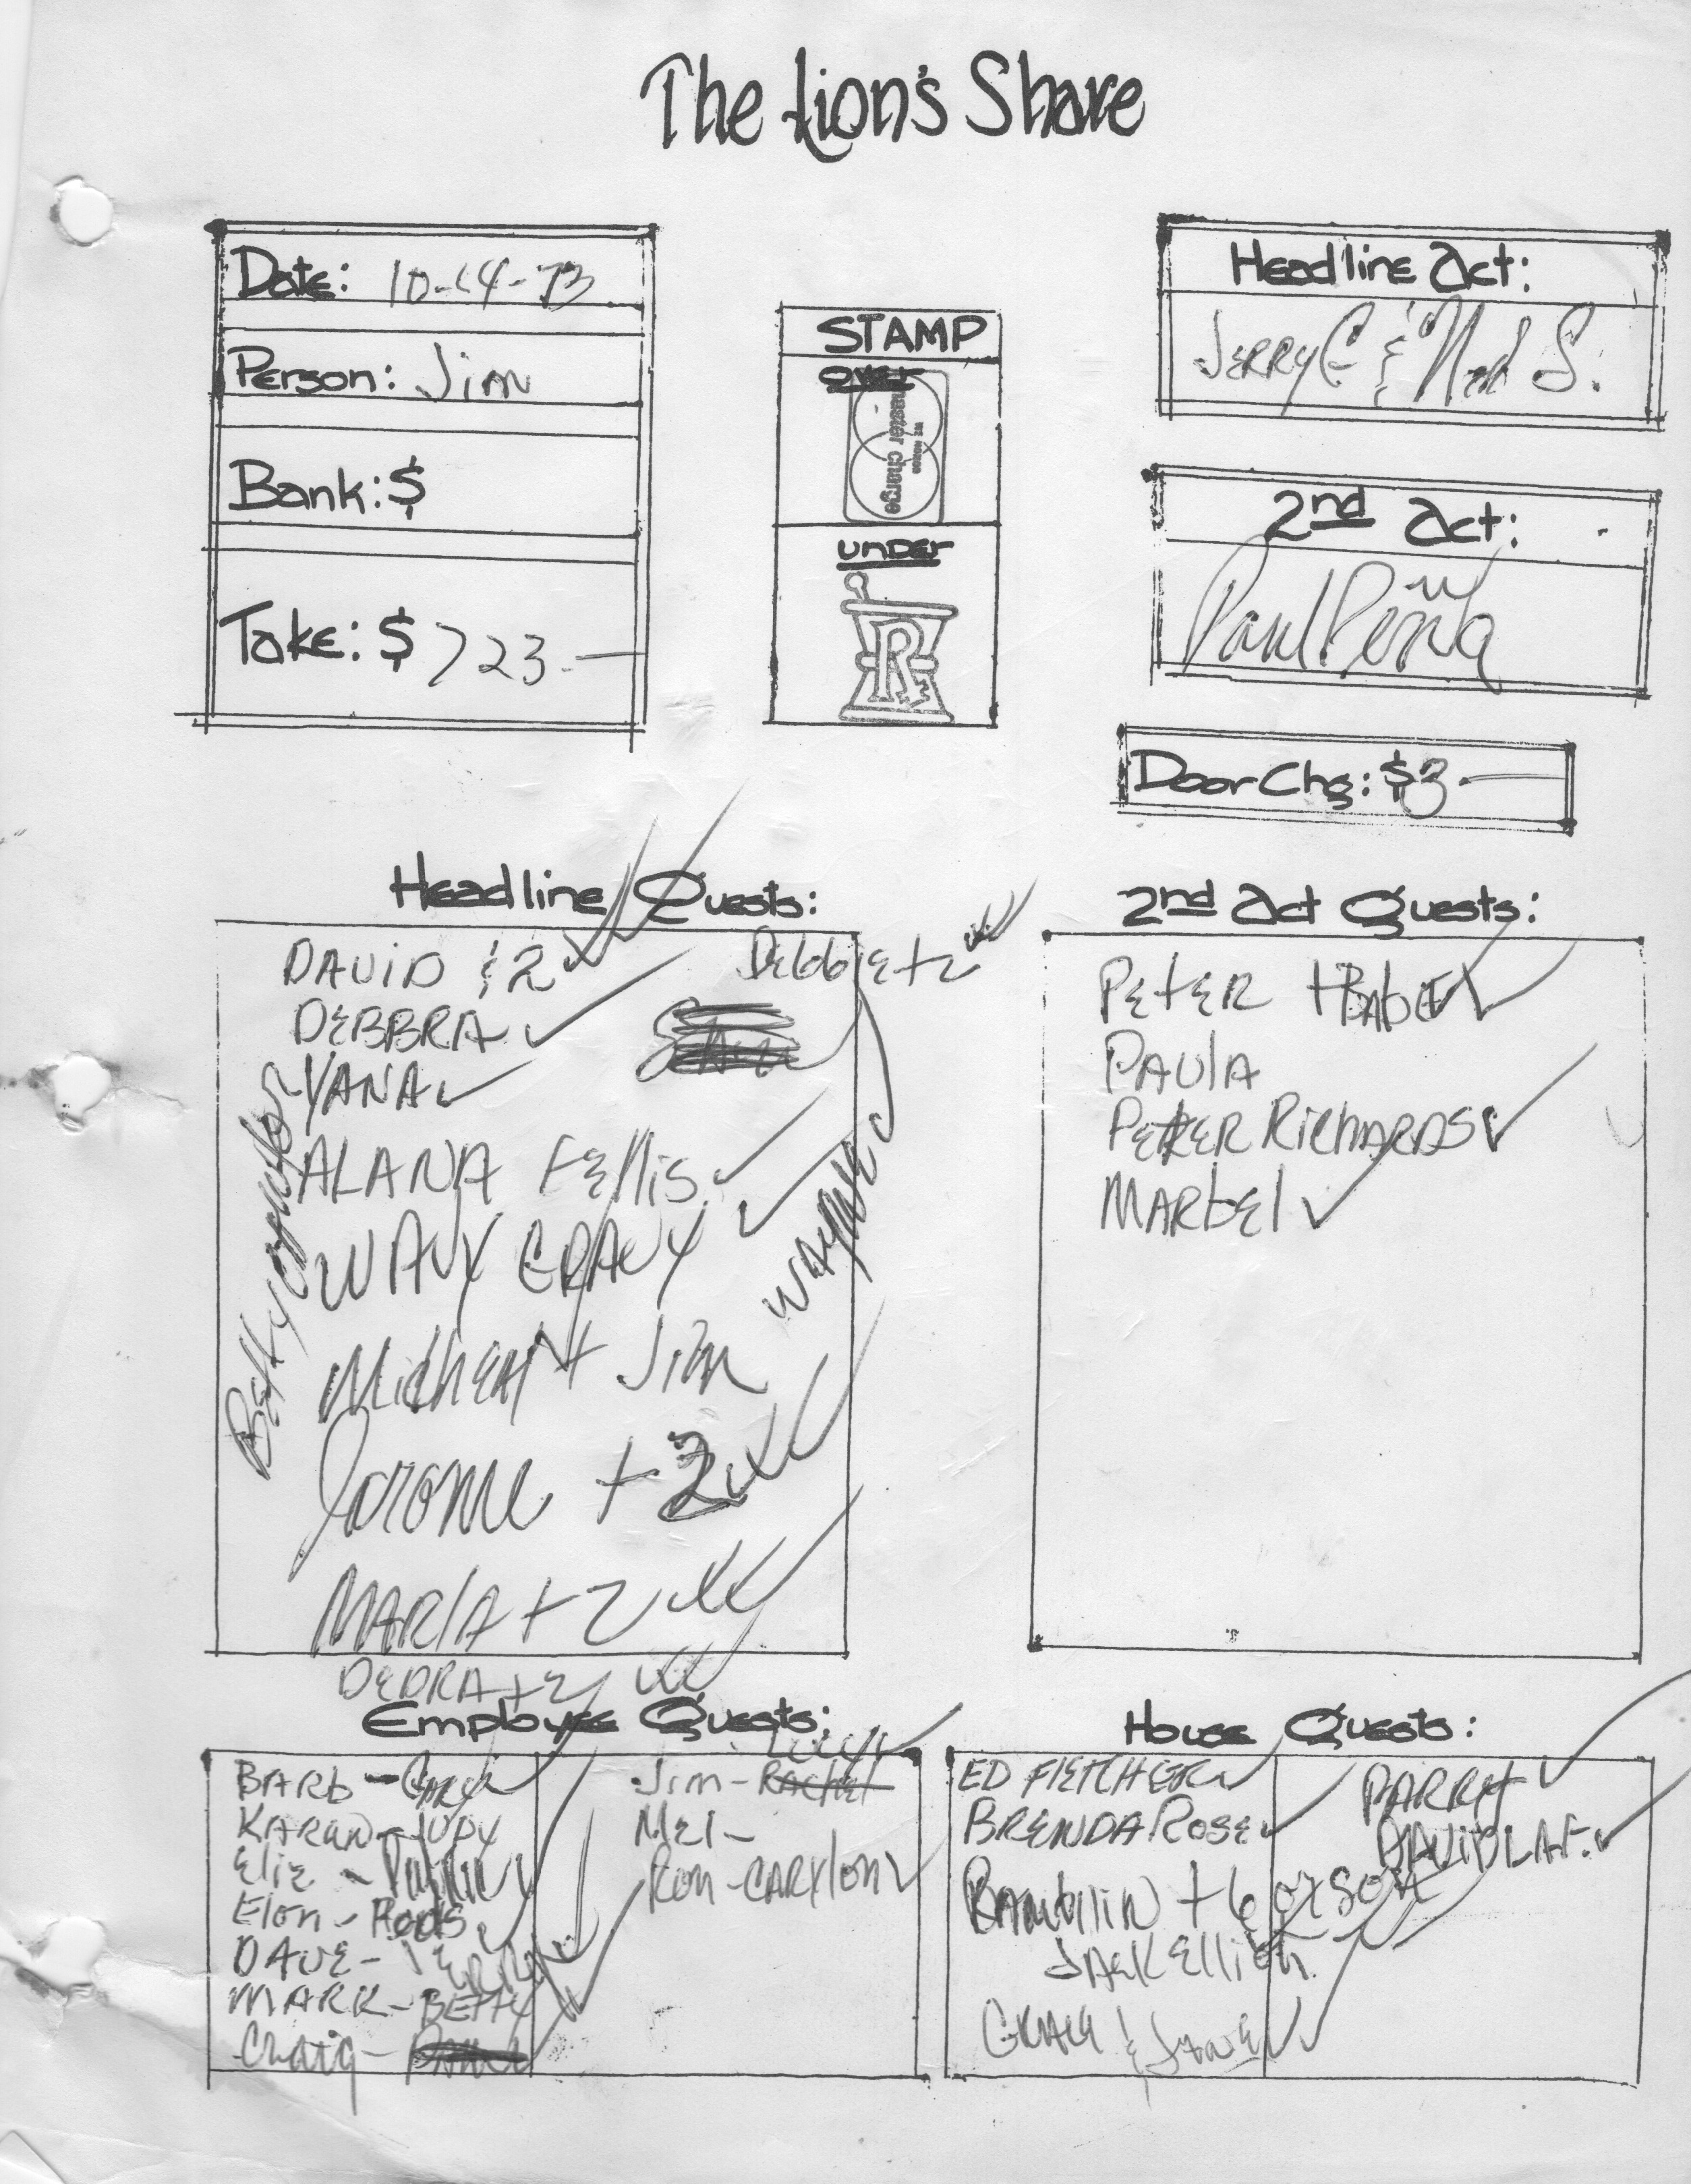 The Lion's Share
Date: 10-14-73
Person: Jim
Bank: $
Take: $ 723.—
STAMP
over
master charge
under
R
Headline Act:
Jerry G & Ned S.
2nd Act:
Paul Peña
Door Chg: $3.—
Headline Guests:
DAVID & 2
Debbie + 2
DEBBRA
YANA
ALANA
WAVY GRAVY
Wayne
Betty
Micheal + Jim
Jerome + 2
MARIA + 2
DEDRA + 2
2nd Act Guests:
PETER + BABE
PAULA
PETER RICHARDS
MARBEL
Employee Guests:
BARB - GARY
KAREN - JUDY
Elie -
Elon - Rods
DAVE - JERRY
MARK - BETTY
Craig -
Lucy
Jim - Rachel
Mel -
Ron - CARXlon
House Guests:
ED FLETCHER
BRENDA ROSE
+ 6 or so
JACK Elliott
& JANE
PARRY
DAVID LAF.